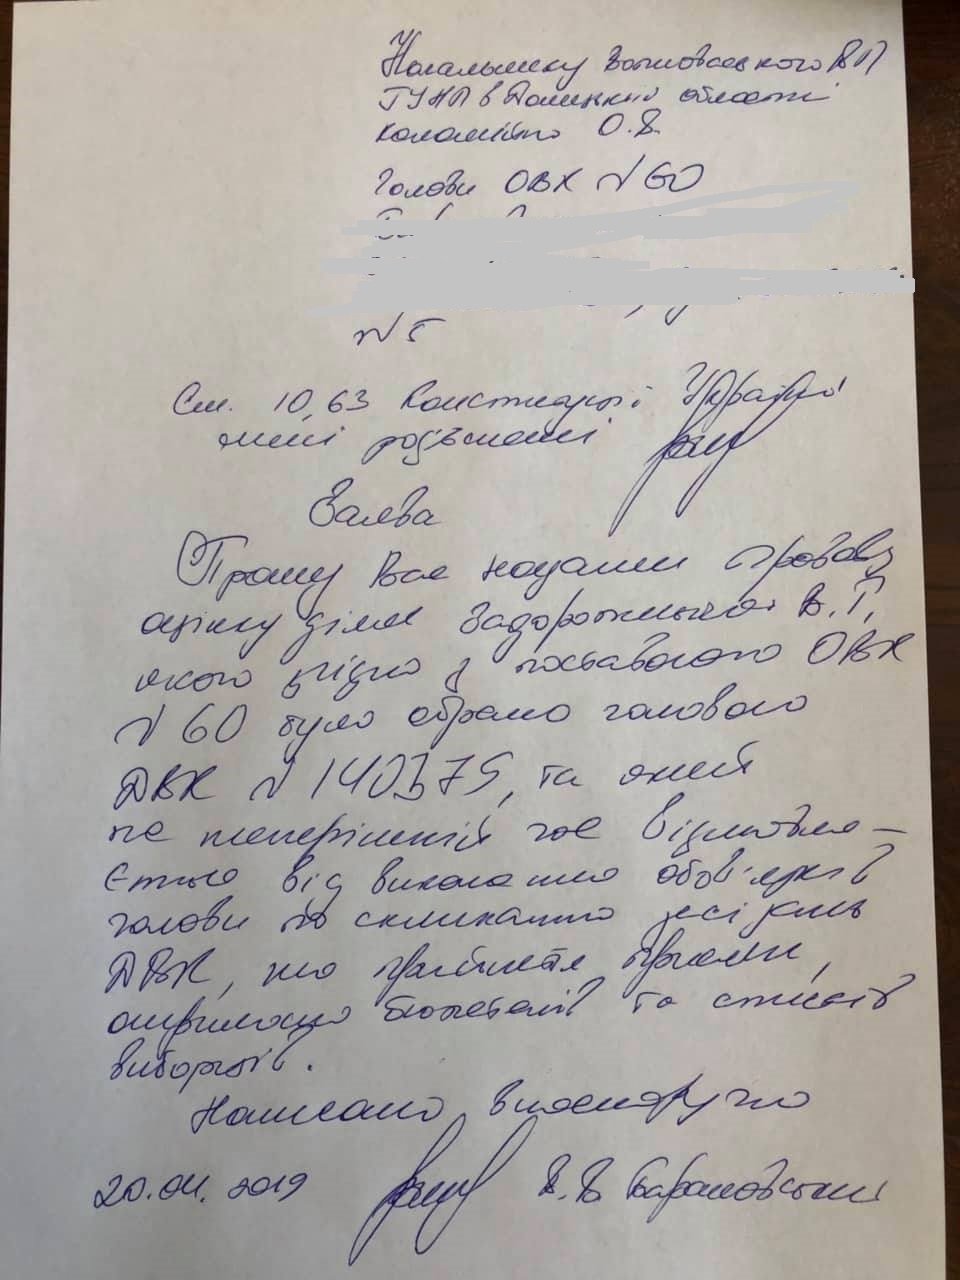 Начальнику Волноваського ВП
ГУНП в Донецькій області
Коломійцю О.В.
Голови ОВК №60
Ст. 10, 63 Конституції України
мені роз'яснені
Заява
Прошу Вас надати правову
оцінку діям Задорожнього В.Г.
якого згідно з постановою ОВК
№60 було обрано головою
ДВК №140375, та який
на теперішній час відмовля-
ється від виконання обов'язків
голови по скликанню засідань
ДВК, по прийняттю
отриманню бюлетенів та списків
виборців.
Написано власноручно
20.04.2019 В.В Барановський